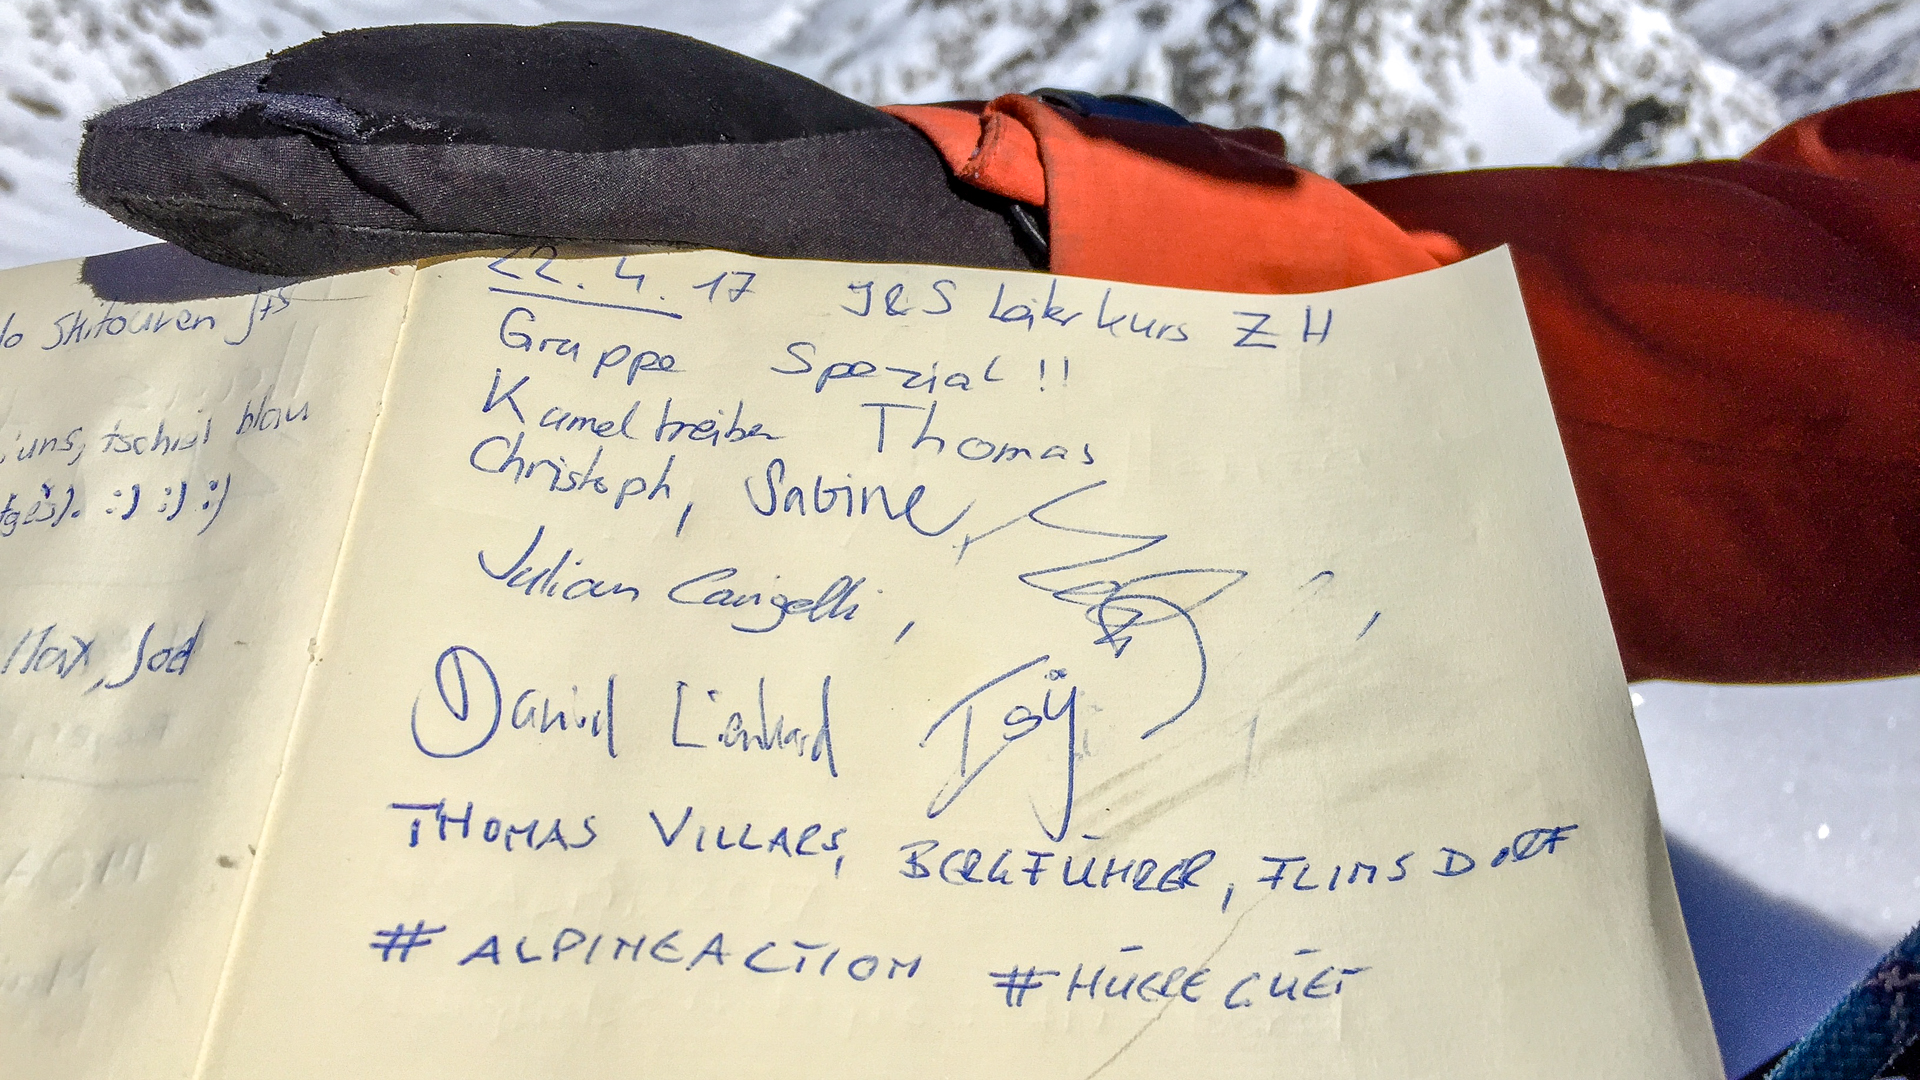 Skitouren
uns, tschiel blau
:) :) :)
Max, Jod
22.4.17 J&S Leiterkurs ZH
Gruppe Spezial !!
Kameltreiber Thomas
Christoph, Sabine,
Julian Cavigelli,
Daniel Lienhard
THOMAS VILLARS, BERGFÜHRER, FLIMS DORF
# ALPINEACTION #HÜERE GÜET